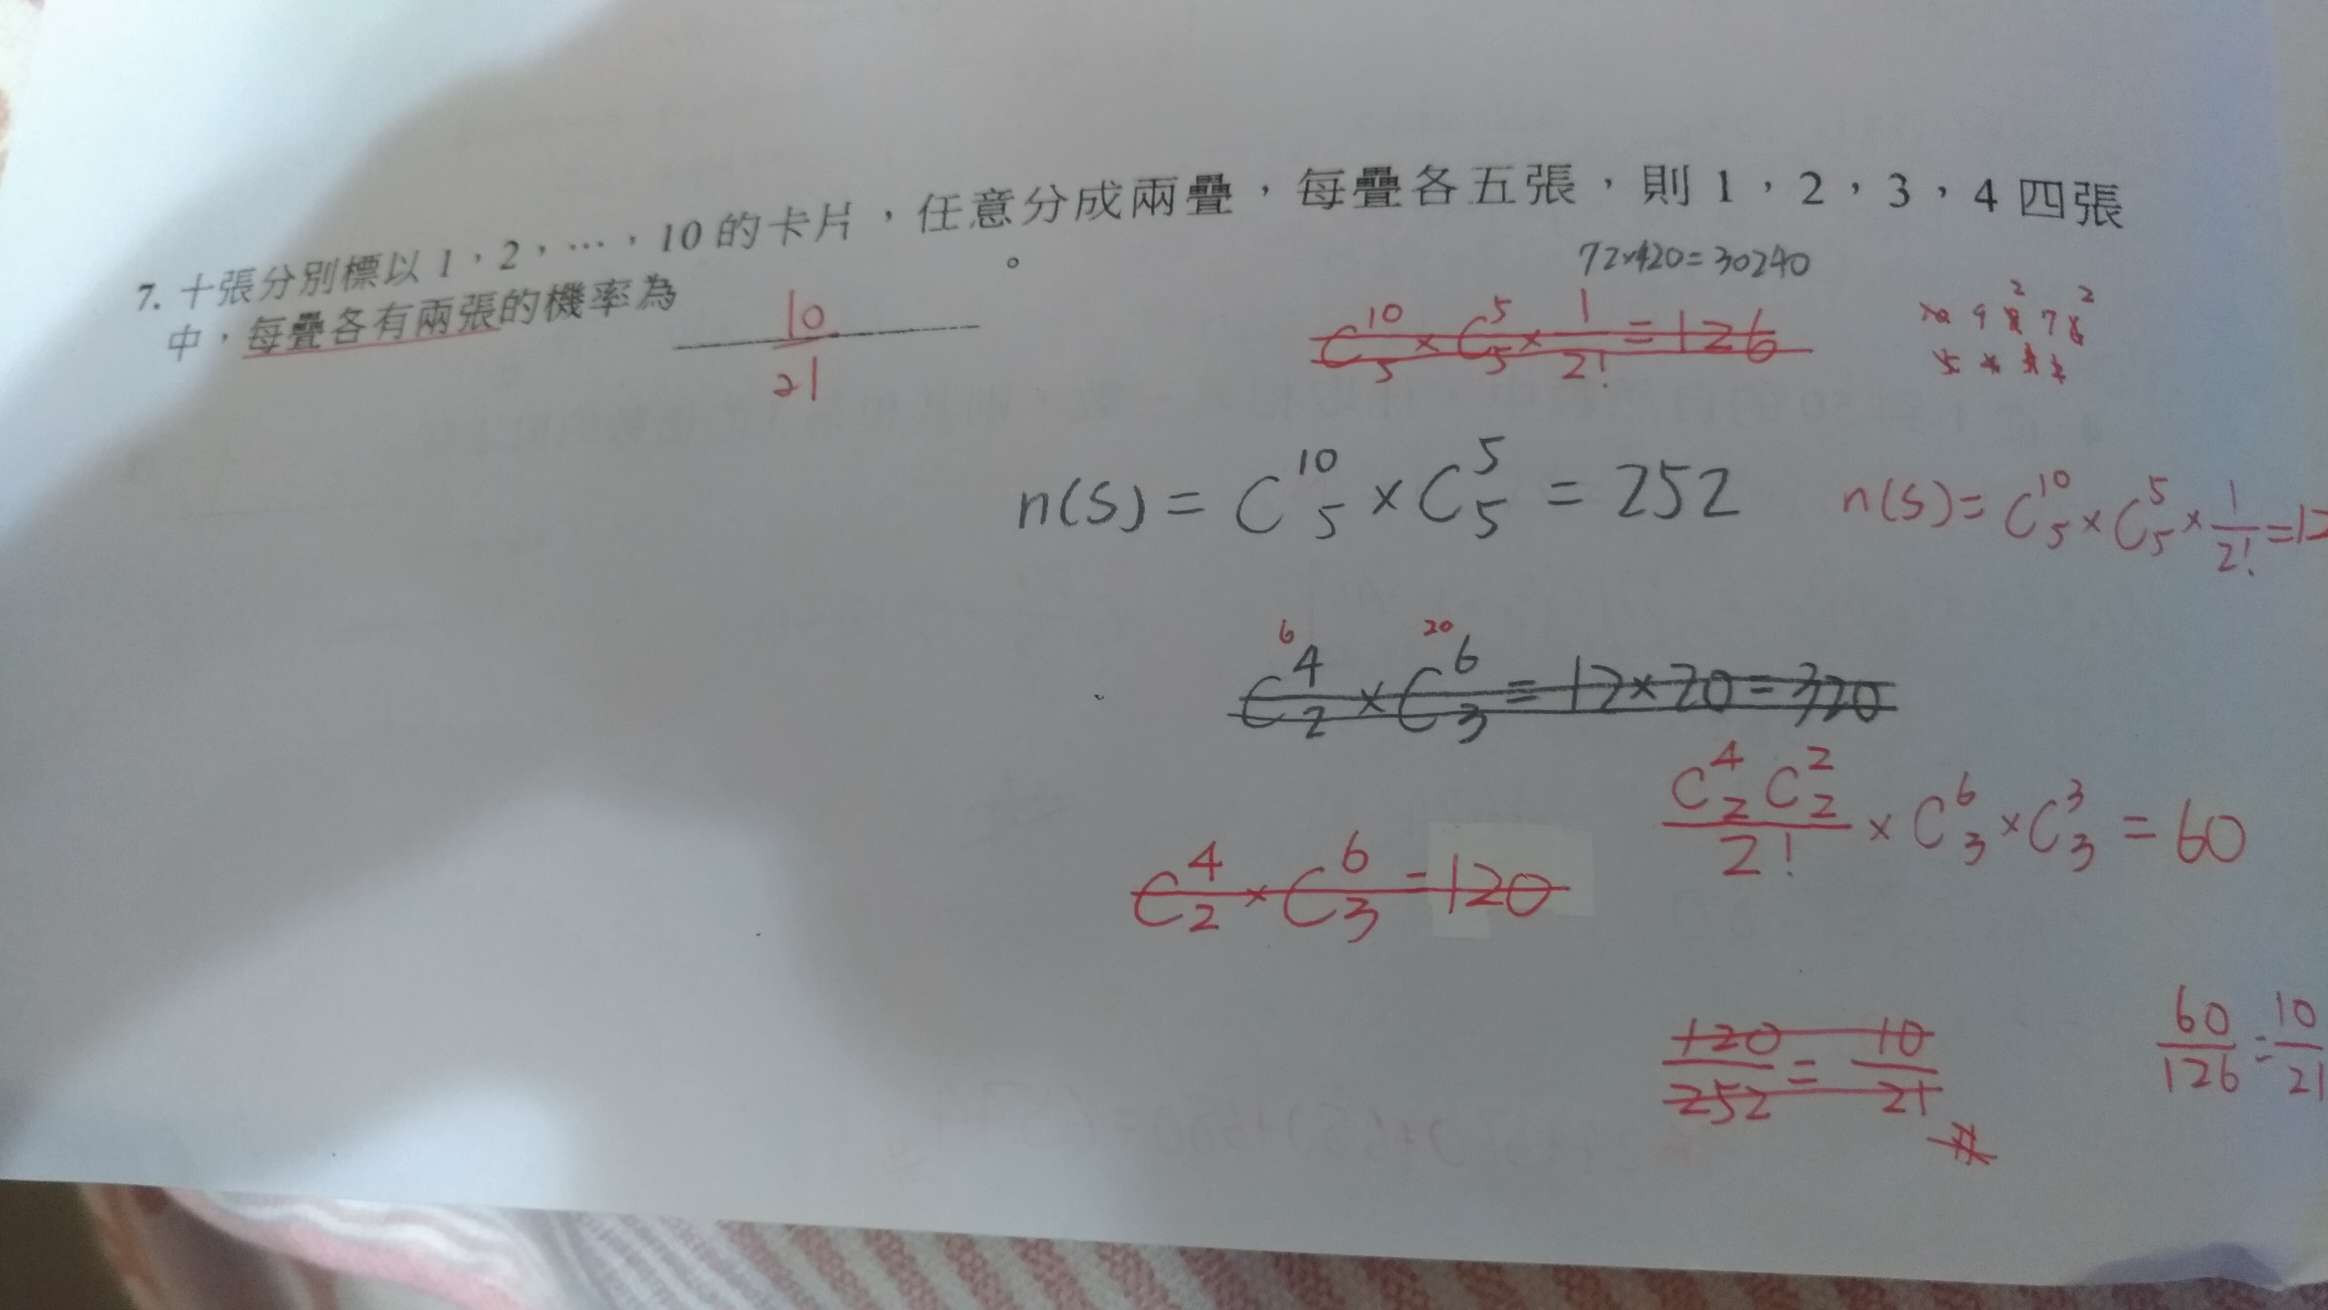 7. 十張分別標以 1，2，…，10 的卡片，任意分成兩疊，每疊各五張，則 1，2，3，4 四張
中，每疊各有兩張的機率為 10/21 。
72×420=30240
C^10_5 × C^5_5 × 1/2! = 126
n(S) = C^10_5 × C^5_5 = 252
n(S) = C^10_5 × C^5_5 × 1/2! = 12
6 20
C^4_2 × C^6_3 = 12×20 = 320
C^4_2 C^2_2 / 2! × C^6_3 × C^3_3 = 60
C^4_2 × C^6_3 = 120
120/252 = 10/21
60/126 = 10/21